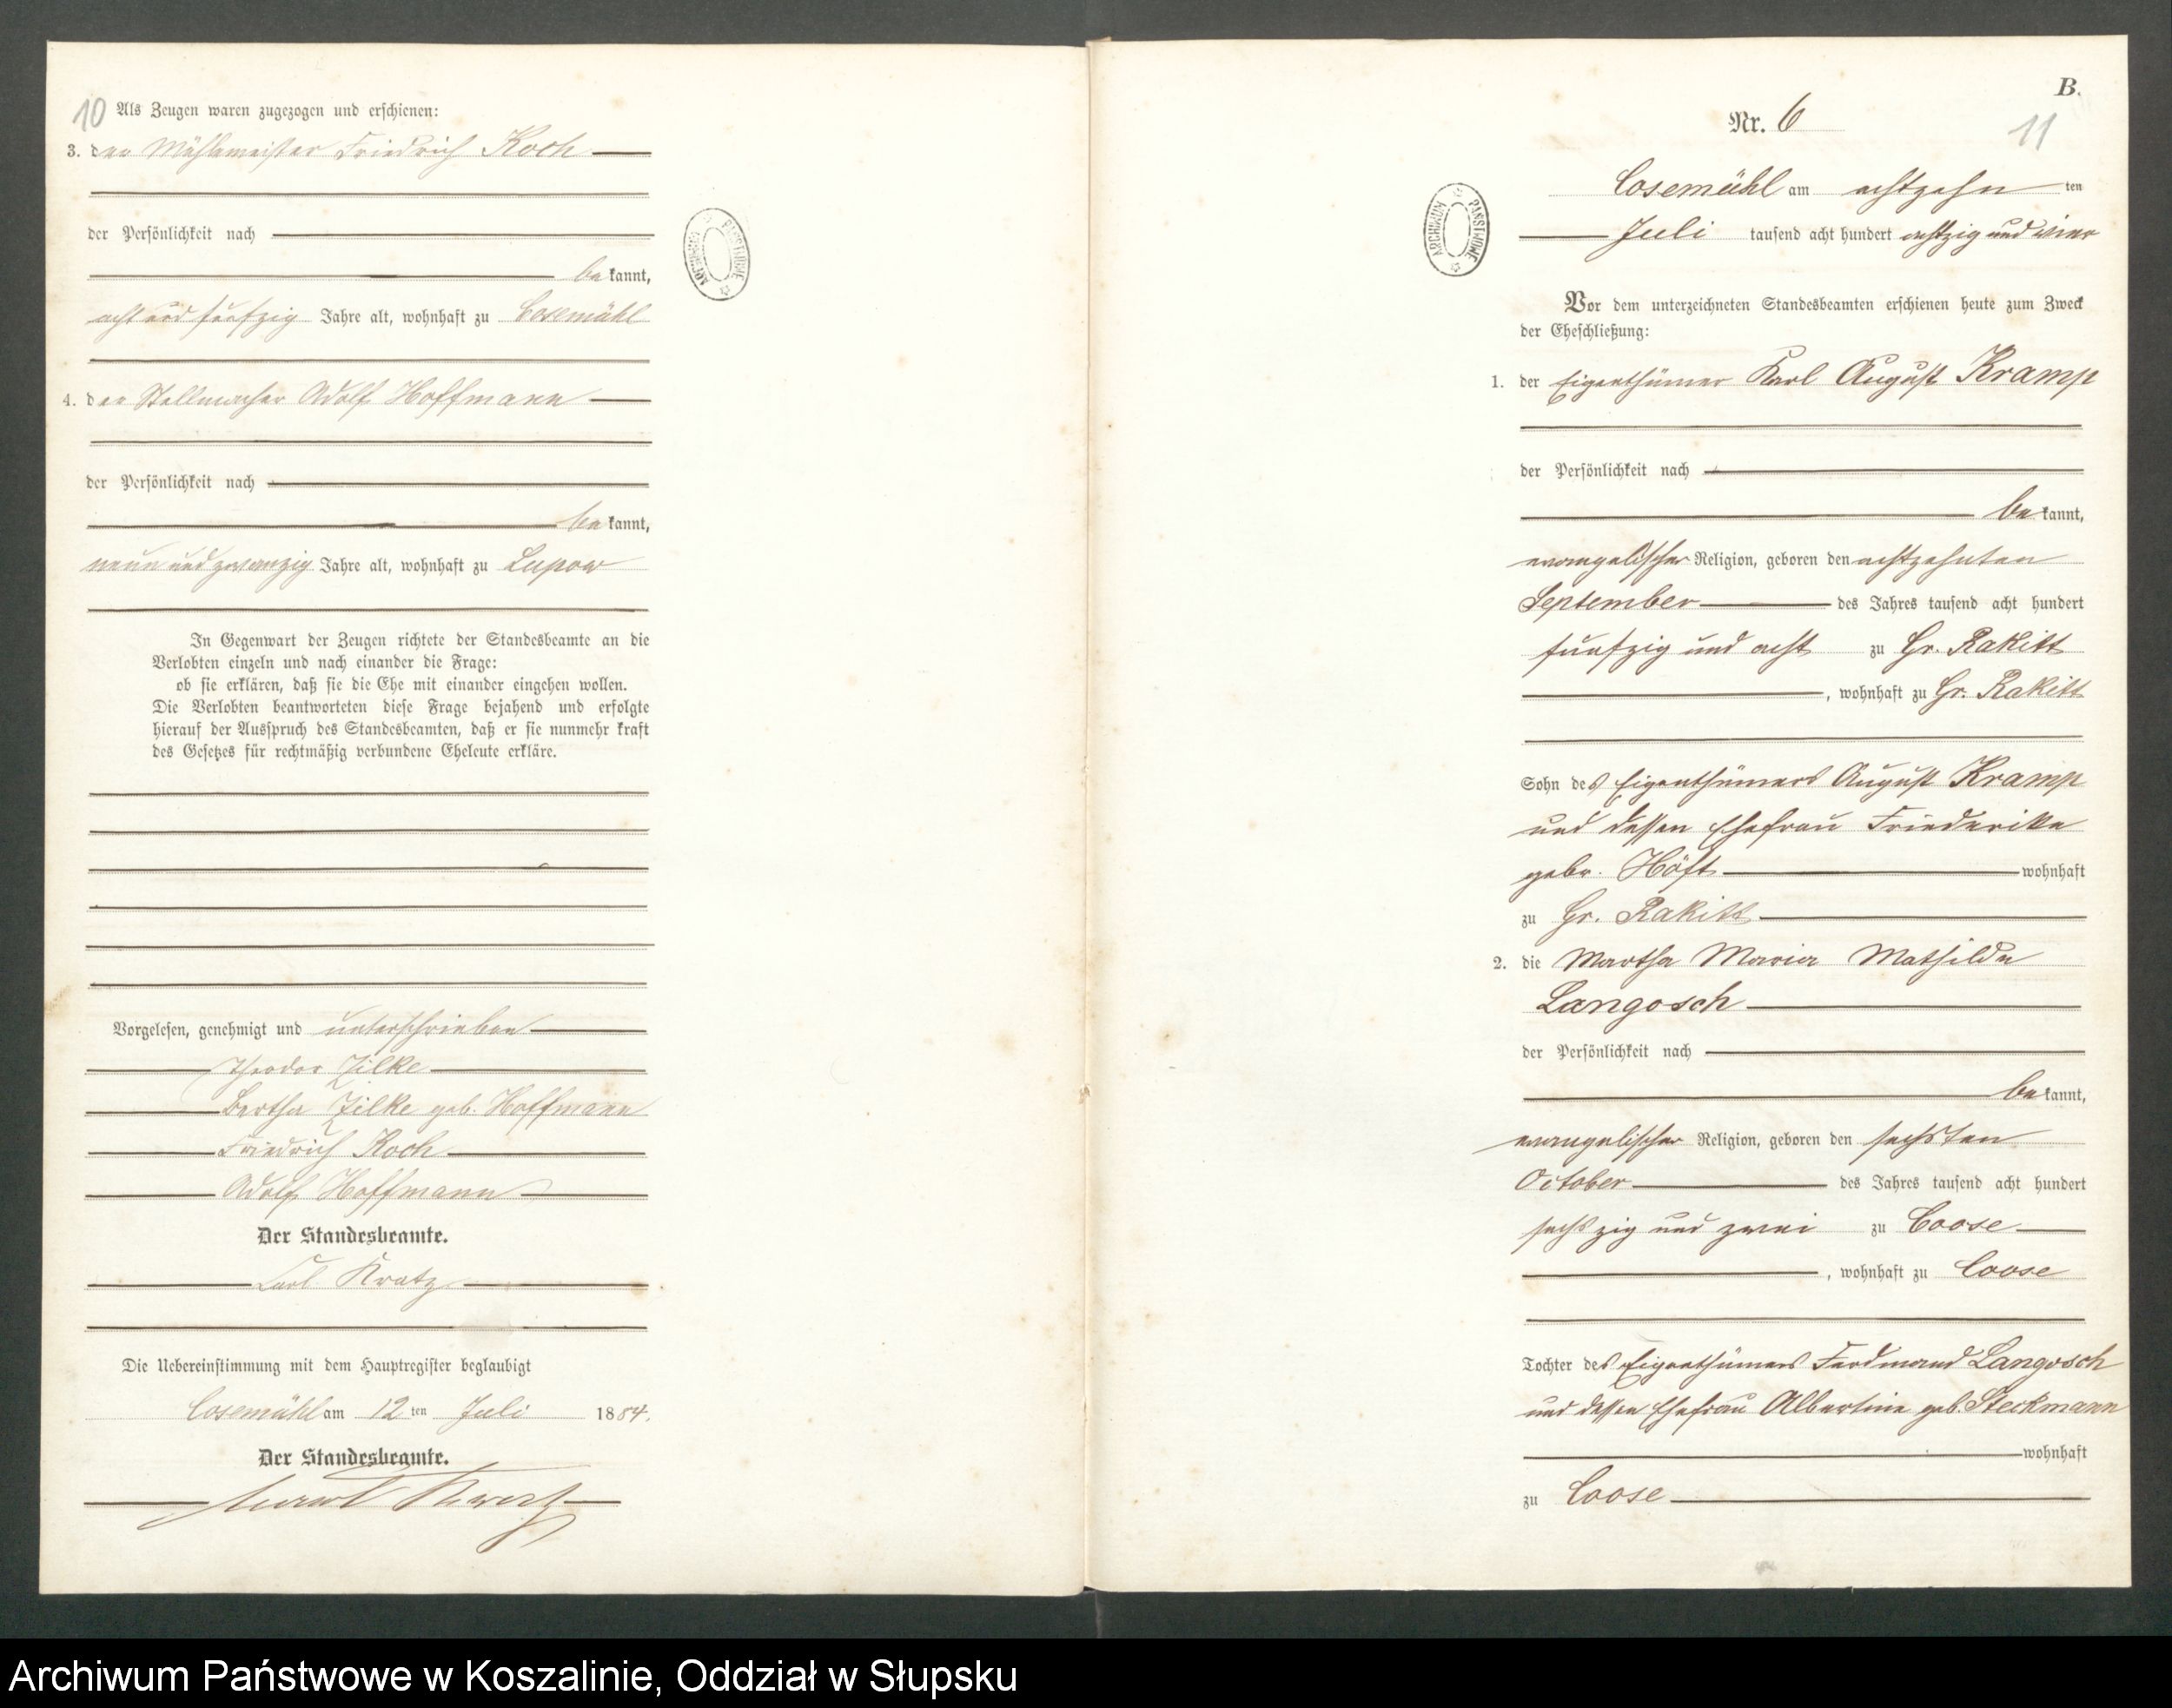 10
Als Zeugen waren zugezogen und erschienen:
3. der Mühlenmeister Friedrich Koch
der Persönlichkeit nach
bekannt,
acht und fünfzig Jahre alt, wohnhaft zu Cosemühl
4. der Stellmacher Adolf Hoffmann
der Persönlichkeit nach
bekannt,
neun und zwanzig Jahre alt, wohnhaft zu Lupow
In Gegenwart der Zeugen richtete der Standesbeamte an die
Verlobten einzeln und nach einander die Frage:
ob sie erklären, daß sie die Ehe mit einander eingehen wollen.
Die Verlobten beantworteten diese Frage bejahend und erfolgte
hierauf der Ausspruch des Standesbeamten, daß er sie nunmehr kraft
des Gesetzes für rechtmäßig verbundene Eheleute erkläre.
Vorgelesen, genehmigt und unterschrieben
Theodor Zilke
Bertha Zilke geb. Hoffmann
Friedrich Koch
Adolf Hoffmann
Der Standesbeamte.
Carl Kratz
Die Uebereinstimmung mit dem Hauptregister beglaubigt
Cosemühl am 12 ten Juli 1884.
Der Standesbeamte.
ARCHIWUM PAŃSTWOWE
B.
11
Nr. 6
Cosemühl am achtzehn ten
Juli tausend acht hundert achtzig und vier
ARCHIWUM PAŃSTWOWE
Vor dem unterzeichneten Standesbeamten erschienen heute zum Zweck
der Eheschließung:
1. der Eigenthümer Karl August Kramp
der Persönlichkeit nach
bekannt,
evangelischer Religion, geboren den achtzehnten
September des Jahres tausend acht hundert
fünfzig und acht zu Gr. Rakitt
, wohnhaft zu Gr. Rakitt
Sohn des Eigenthümers August Kramp
und dessen Ehefrau Friederike
gebr. Höft wohnhaft
zu Gr. Rakitt
2. die Martha Maria Mathilde
Langosch
der Persönlichkeit nach
bekannt,
evangelischer Religion, geboren den sechsten
October des Jahres tausend acht hundert
sechszig und zwei zu Coose
, wohnhaft zu Coose
Tochter des Eigenthümers Ferdinand Langosch
und dessen Ehefrau Albertine geb. Steckmann
wohnhaft
zu Coose
Archiwum Państwowe w Koszalinie, Oddział w Słupsku